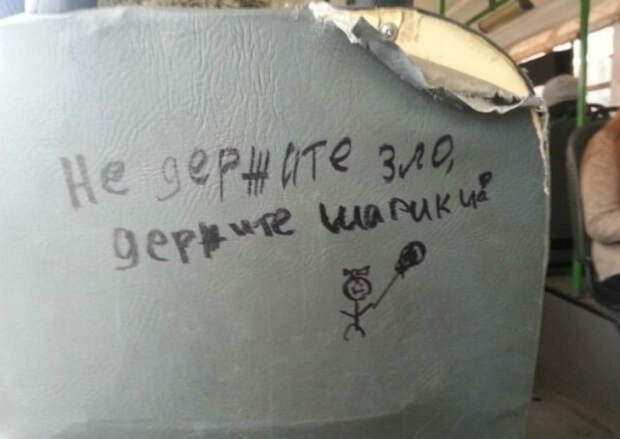 Не держите зло,
держите шарики